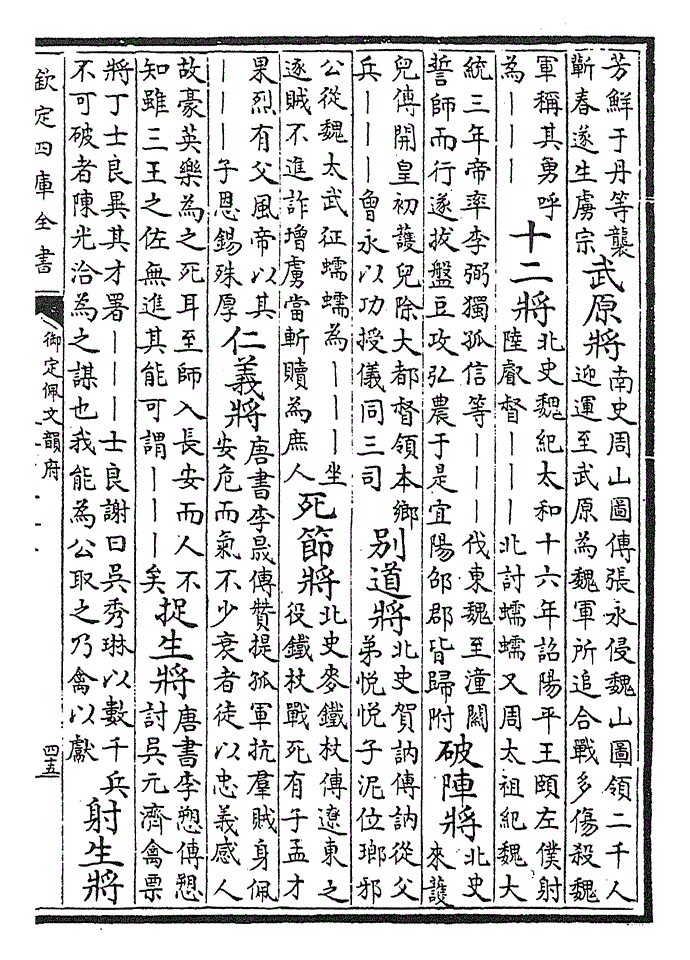 芳鮮于丹等襲
蘄春遂生虜宗
武原將
南史周山圖傳張永侵魏山圖領二千人
迎運至武原為魏軍所追合戰多傷殺魏
軍稱其勇呼
為｜｜｜
十二將
北史魏紀太和十六年詔陽平王頤左僕射
陸叡督｜｜｜北討蠕蠕又周太祖紀魏大
統三年帝率李弼獨孤信等｜｜｜伐東魏至潼關
誓師而行遂拔盤豆攻弘農于是宜陽邵郡皆歸附
破陣將
北史
來護
兒傳開皇初護兒除大都督領本鄉
兵｜｜｜曾永以功授儀同三司
別道將
北史賀訥傳訥從父
弟悅悅子泥位瑯邪
公從魏太武征蠕蠕為｜｜｜坐
逐賊不進詐增虜當斬贖為庶人
死節將
北史麥鐵杖傳遼東之
役鐵杖戰死有子孟才
果烈有父風帝以其
｜｜｜子恩錫殊厚
仁義將
唐書李晟傳贊提孤軍抗羣賊身佩
安危而氣不少衰者徒以忠義感人
故豪英樂為之死耳至師入長安而人不
知雖三王之佐無進其能可謂｜｜｜矣
捉生將
唐書李愬傳愬
討吳元濟禽票
將丁士良異其才署｜｜｜士良謝曰吳秀琳以數千兵
不可破者陳光洽為之謀也我能為公取之乃禽以獻
射生將
欽定四庫全書
御定佩文韻府
四十五